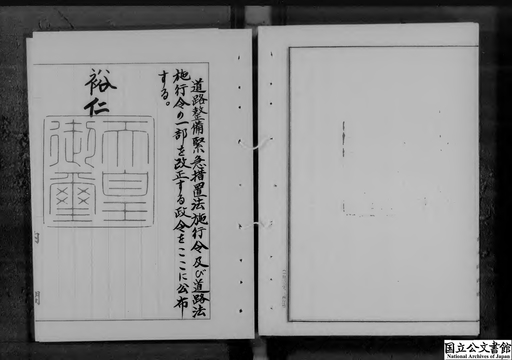 道路整備緊急措置法施行令及び道路法
施行令の一部を改正する政令をここに公布
する。
裕仁
天皇
御璽
国立公文書館
National Archives of Japan